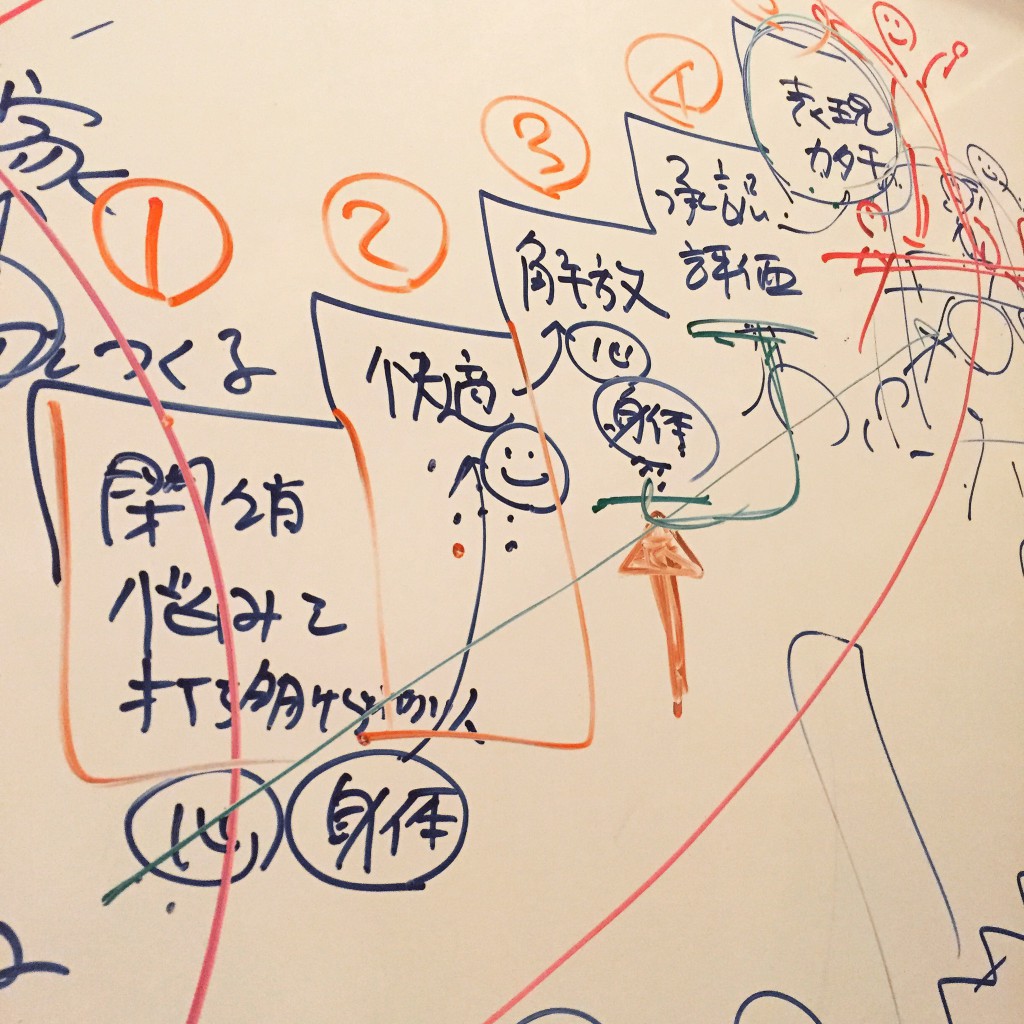 ①
②
③
④
表現
カタチ
承認
評価
解放
心
身体
快適
つくる
閉鎖
悩みに
打ち明けない
心
身体